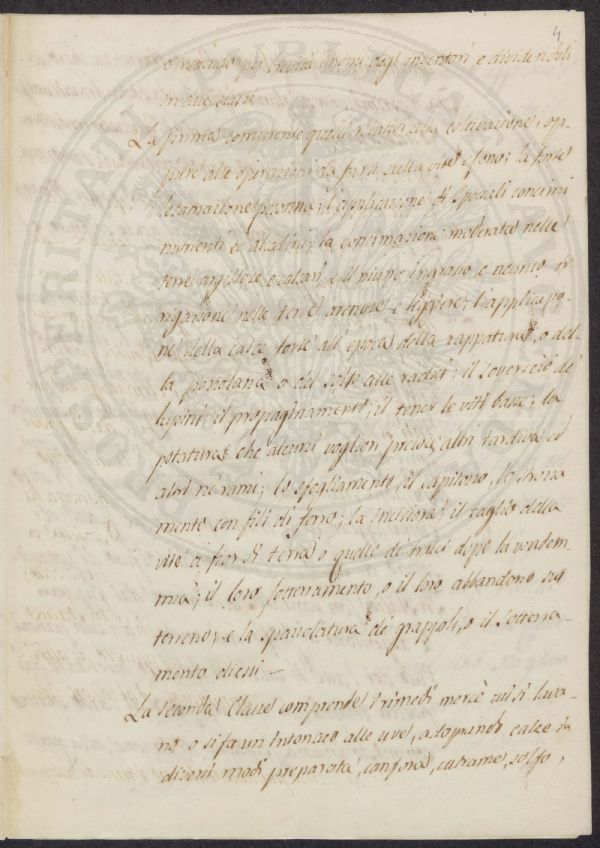 4
nomi degl' inventori e dividendoli
in due classi
La prima comprende quelli relativi alla coltivazione, op-
pure alle operazioni da farsi sulla vite e sono: la forte
letamazione pecorina; l'applicazione di speciali concimi
nutrienti ed alcalini; la concimazione moderata nelle
terre argillose e calcari e il niuno ingrasso e nemmeno ir-
rigazione nelle terre arenose e leggere; l'applicazio-
ne della calce forte all' epoca della zappatura, o del-
la pozzolana o del solfo alle radici; il sovescio de'
lupini; il propaginamento; il tener le viti basse; la
potatura che alcuni voglion precoce, altri tardiva ed
altri; lo sfogliamento, il
mento con fili di ferro; la incisione; il taglio della
vite a fior di terra o quello de' tralci dopo la vendem-
mia; il loro sotterramento, o il loro abbandono sul
terreno, e la spruzzolatura de' grappoli, o il sotterra-
mento di essi —
La seconda Classe comprende i rimedi mercè cui si lava-
no o si fa un intonaco alle uve, adoprando calce in
diversi modi preparata, canfora, catrame, solfo,
PROSPERITATI PUBLICAE